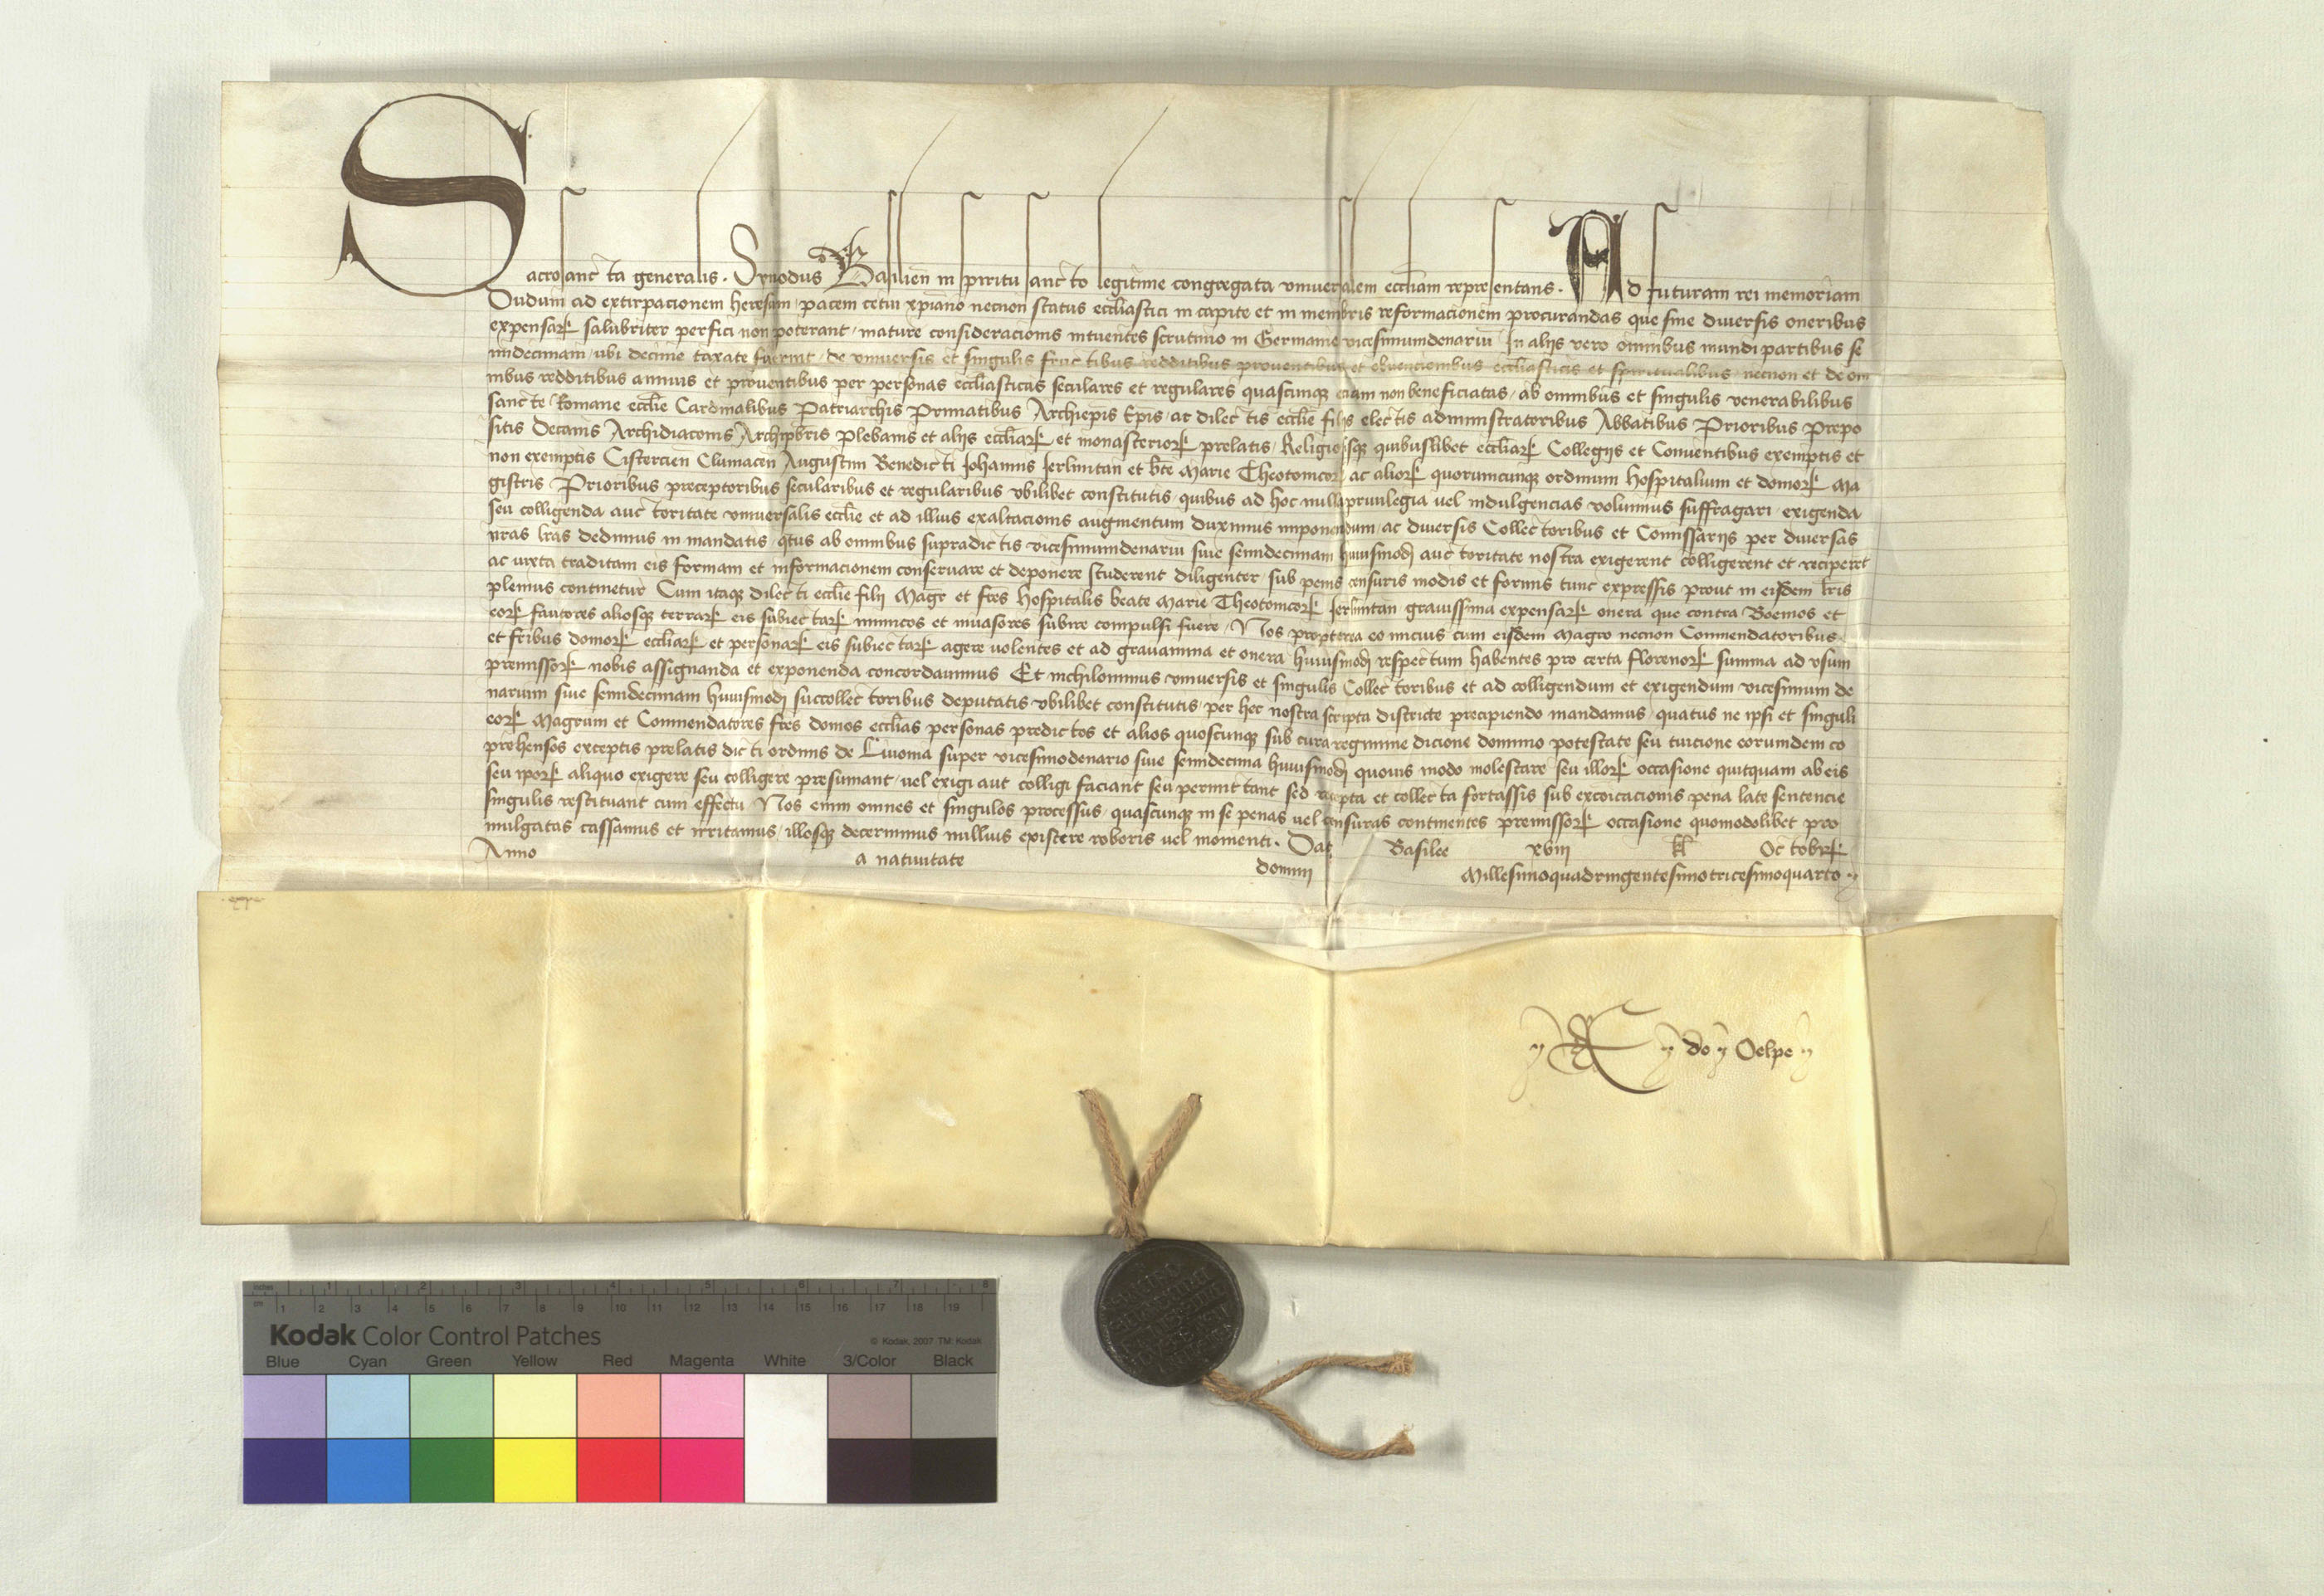 Sacrosancta generalis. Synodus Basilien in spiritu sancto legitime congregata universalem eccliam representans. Ad futuram rei memoriam
Dudum ad extirpacionem heresum pacem cetui xpiano necnon status ecclastici in capite et in membris reformacionem procurandas que sine diversis oneribus
expensarꝝ salubriter perfici non poterant, mature consideracionis intuentes scrutinio in Germanie vicesimumdenariū In alijs vero omnibus mundi partibus se
midecimam, ubi decime taxate fuerint, de universis et singulis fructibus redditibus proventibus et obvencionibus ecclasticis et spiritualibus, necnon et de om
nibus redditibus annuis et proventibus per personas ecclasticas seculares et regulares quascunqꝫ eciam non beneficiatas, ab omnibus et singulis venerabilibus
sancte Romane ecclie Cardinalibus Patriarchis Primatibus Archiepis Epis, ac dilectis ecclie filijs electis administratoribus Abbatibus Prioribus Prepo
sitis Decanis Archidiaconis Archipbris Plebanis et alijs eccliarꝝ et monasteriorꝝ prelatis, Religiosisqꝫ quibuslibet eccliarꝝ Collegijs et Conventibus exemptis et
non exemptis Cistercien Cluniacen Augustini Benedicti Johannis Jerlmitan et bte Marie Theotonicorꝝ ac aliorꝝ quorumcunqꝫ ordinum hospitalium et domorꝝ Ma
gistris Prioribus preceptoribus secularibus et regularibus ubilibet constitutis, quibus ad hoc nulla privilegia vel indulgencias volumus suffragari, exigenda
seu colligenda auctoritate universalis ecclie et ad illius exaltacionis augmentum duximus imponendum, ac diversis Collectoribus et Comissarijs per diversas
nras lras dedimus in mandatis, qtus ab omnibus supradictis vicesimumdenariū sive semidecimam huiusmodi auctoritate nostra exigerent colligerent et reciperet
ac iuxta traditam eis formam et informacionem conservare et deponere studerent diligenter, sub penis censuris modis et formis tunc expressis prout in eisdem lris
plenius continetur Cum itaqꝫ dilecti ecclie filij Magr et fres hospitalis beate Marie Theotonicorꝝ Jerlmitan gravissima expensarꝝ onera que contra Boemos et
eorꝝ fautores aliosqꝫ terrarꝝ eis subiectarꝝ inimicos et invasores subire compulsi fuere, Nos propterea eo micius cum eisdem Magro necnon Commendatoribus
et fribus domorꝝ eccliarꝝ et personarꝝ eis subiectarꝝ agere volentes et ad gravamina et onera huiusmodi respectum habentes pro certa florenorꝝ summa ad usum
premissorꝝ nobis assignanda et exponenda concordavimus Et nichilominus universis et singulis Collectoribus et ad colligendum et exigendum vicesimum de
narium sive semidecimam huiusmodi succollectoribus deputatis ubilibet constitutis, per hec nostra scripta districte precipiendo mandamus, quatus ne ipsi et singuli
eorꝝ Magrum et Commendatores fres domos ecclias personas predictos et alios quoscunqꝫ sub cura regimine dicione dominio potestate seu tuicione eorumdem co
prehensos exceptis prelatis dicti ordinis de Livonia super vicesimodenario sive semidecima huiusmodi quovis modo molestare seu illorꝝ occasione quitquam ab eis
seu ipsorꝝ aliquo exigere seu colligere presumant, vel exigi aut colligi faciant seu permittant sed recepta et collecta fortassis sub excoicacionis pena late sentencie
singulis restituant cum effectu Nos enim omnes et singulos processus, quascunqꝫ in se penas vel censuras continentes premissorꝝ occasione quomodolibet pro
mulgatas cassamus et irritamus, illosqꝫ decernimus nullius existere roboris vel momenti. Dat Basilee xviij kl Octobrꝝ
Anno a nativitate domini Millesimoquadringentesimotricesimoquarto
de Oelpe
Kodak Color Control Patches
© Kodak, 2007 TM: Kodak
inches 1 2 3 4 5 6 7 8
cm 1 2 3 4 5 6 7 8 9 10 11 12 13 14 15 16 17 18 19
Blue Cyan Green Yellow Red Magenta White 3/Color Black